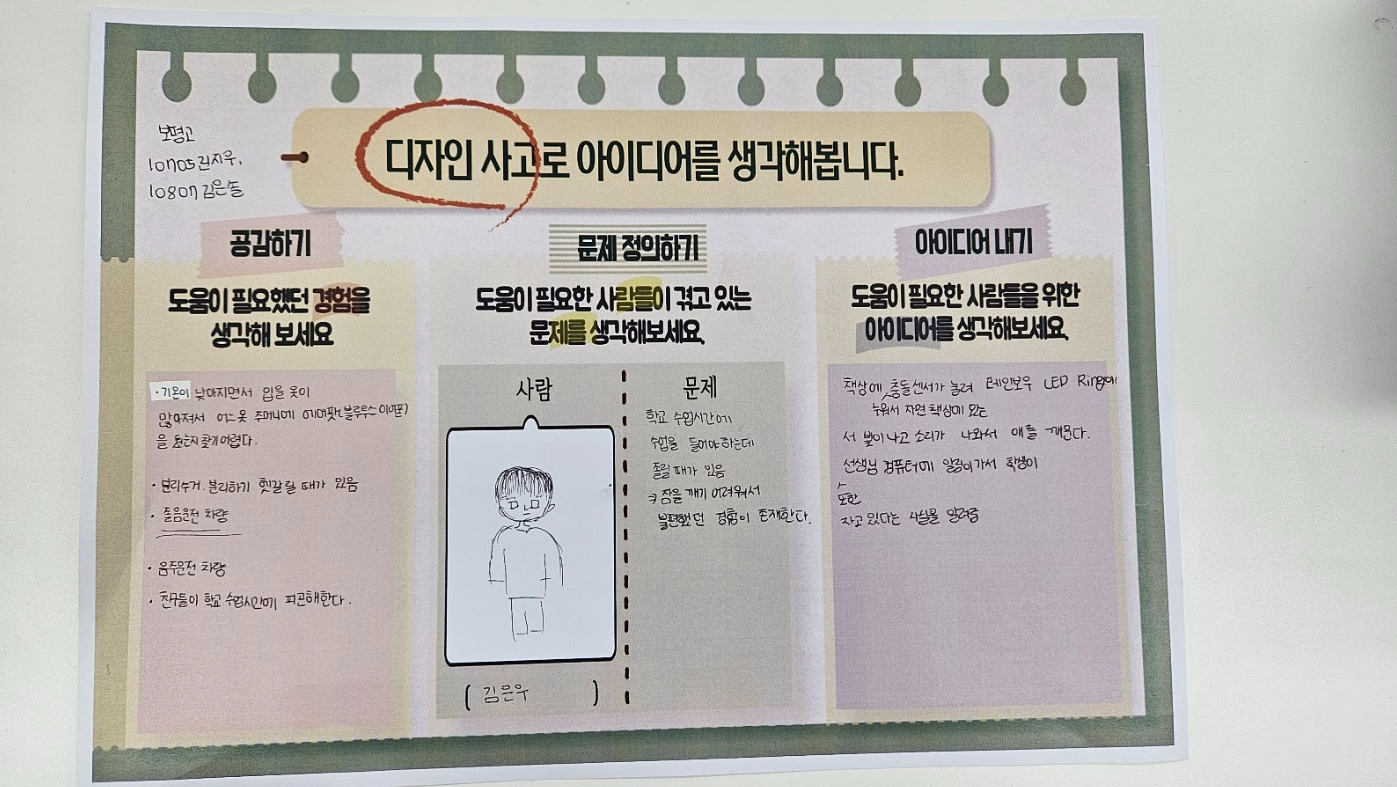 보평고
10705 김지우,
10807 김은솔
디자인 사고로 아이디어를 생각해봅니다.
공감하기
도움이 필요했던 경험을
생각해 보세요
· 기온이 낮아지면서 입을 옷이
많아져서 어느 옷 주머니에 에어팟(블루투스 이어폰)
을 뒀는지 찾기 어렵다.
· 분리수거. 분리하기 헷갈릴 때가 있음
· 졸음운전 차량
· 음주운전 차량
· 친구들이 학교 수업시간에 피곤해한다.
문제 정의하기
도움이 필요한 사람들이 겪고 있는
문제를 생각해보세요.
사람
( 김은우 )
문제
학교 수업시간에
수업을 들어야 하는데
졸릴 때가 있음
잠을 깨기 어려워서
불편했던 경험이 존재한다.
아이디어 내기
도움이 필요한 사람들을 위한
아이디어를 생각해보세요.
책상에 충돌센서가 눌려 레인보우 LED Ring에
누워서 자면 책상에 있는
서 빛이 나고 소리가 나와서 애를 깨운다.
선생님 컴퓨터에 알림이 가서 학생이
또한
자고 있다는 사실을 알려줌